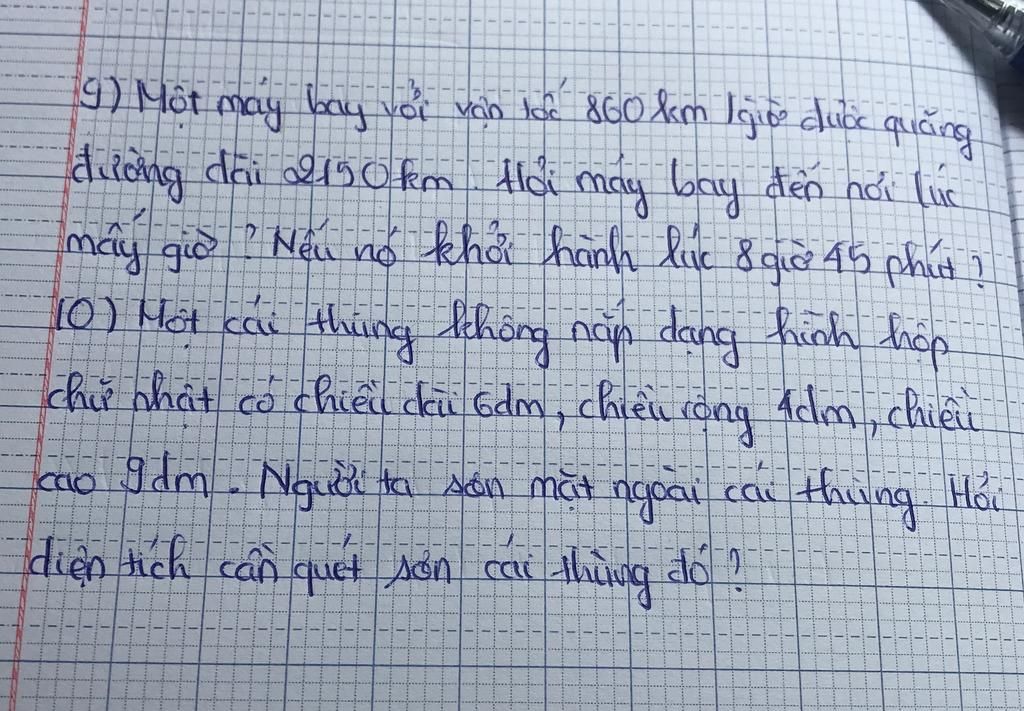 9) Một máy bay với vận tốc 860 km/giờ được quãng
đường dài 2150 km. Hỏi máy bay đến nơi lúc
mấy giờ? Nếu nó khởi hành lúc 8 giờ 45 phút?
10) Một cái thùng không nắp dạng hình hộp
chữ nhật có chiều dài 6dm, chiều rộng 4dm, chiều
cao 9dm. Người ta sơn mặt ngoài cái thùng. Hỏi
diện tích cần quét sơn cái thùng đó?